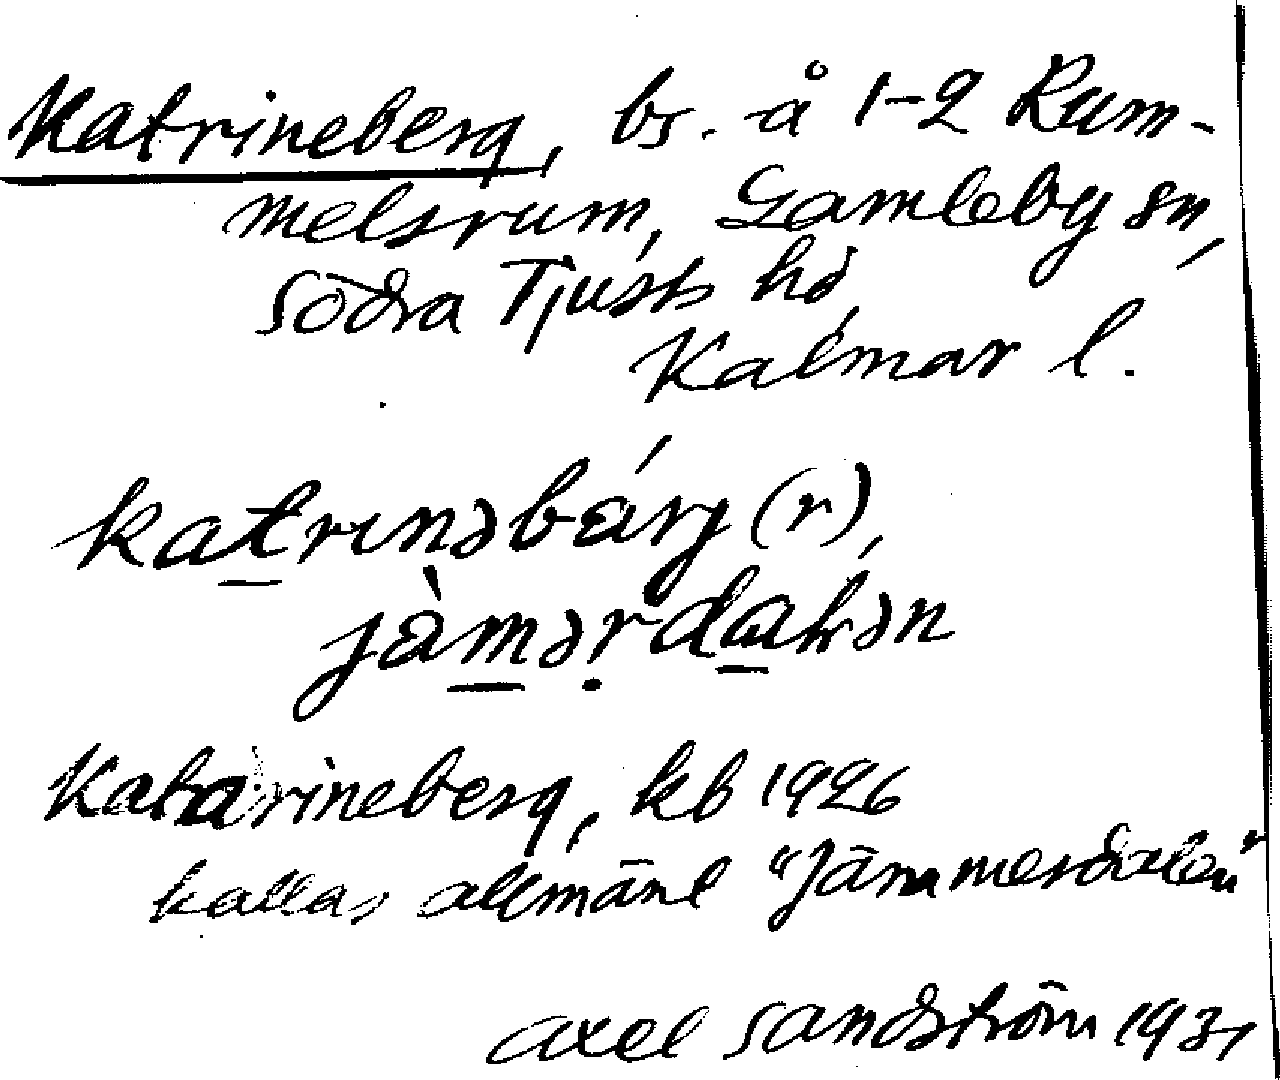 Katrineberg, bs. å 1-2 Rum-
melsrum, Gamleby sn,
Södra Tjusts hd,
Kalmar l.
katrɩnəbárj (r),
jàmərdaɩ̵ən
Katarineberg, kb 1926
kallas allmänt "Jämmerdalen"
Axel Sandström 1931